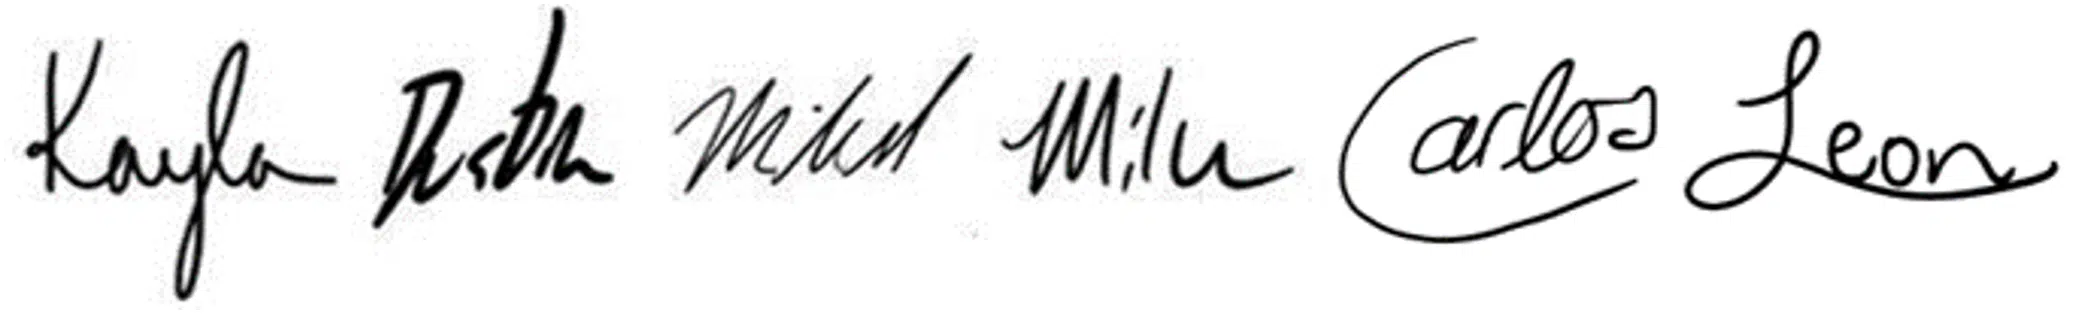 Kayla Dustin Mikel Mike Carlos Leon